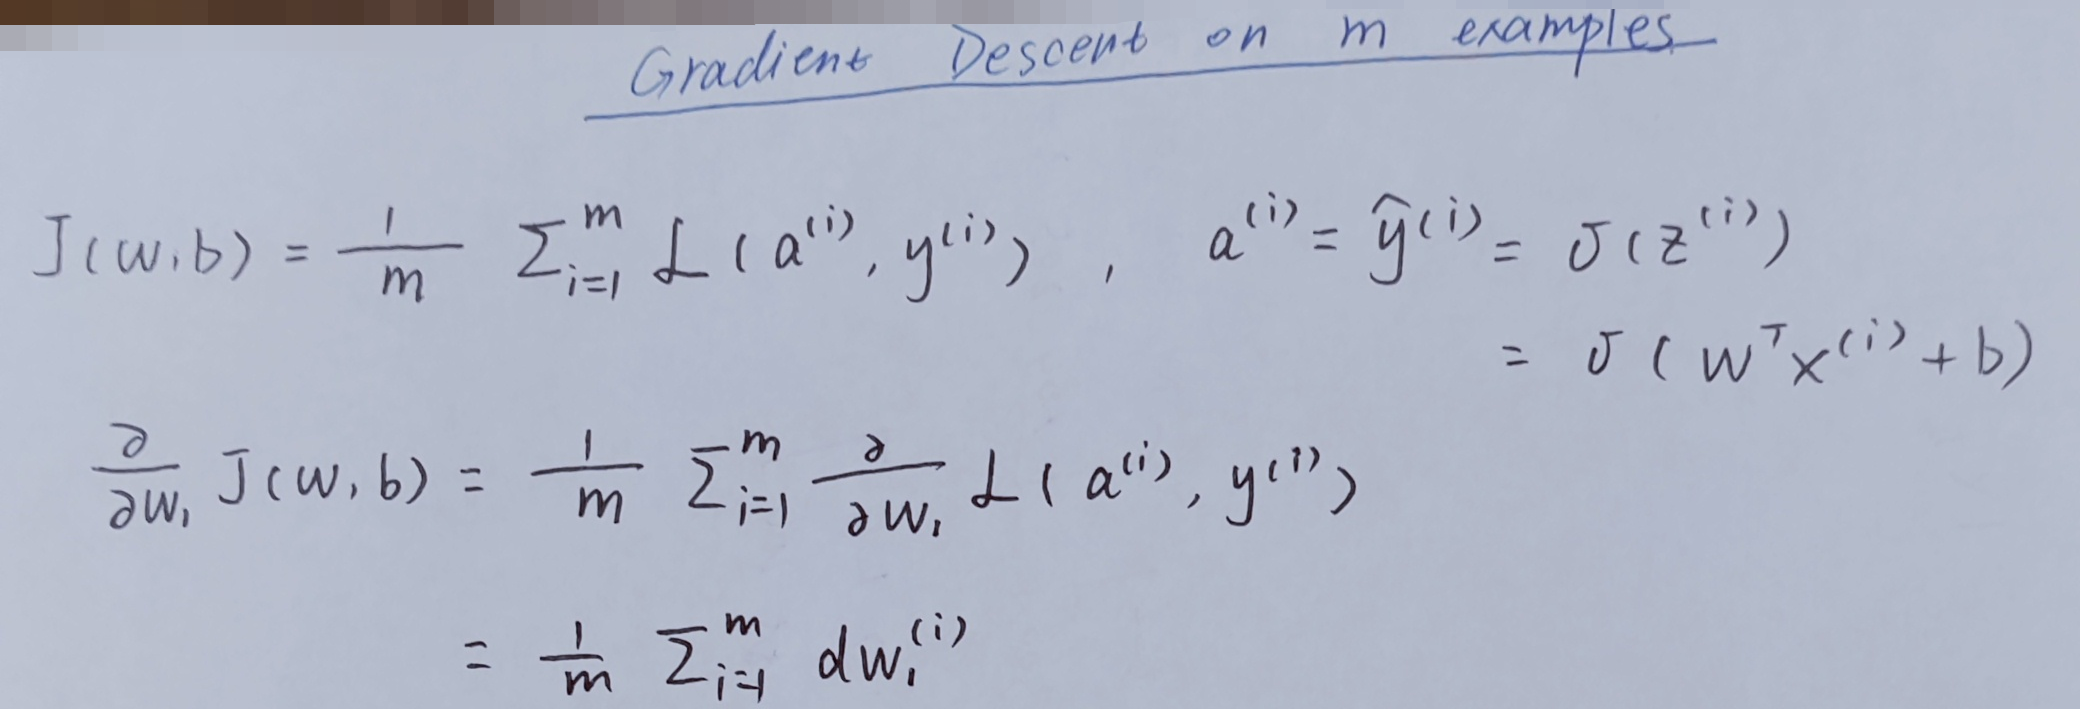 Gradient Descent on m examples
J(w,b) = 1/m Σ_{i=1}^{m} L(a^{(i)}, y^{(i)}), a^{(i)} = ŷ^{(i)} = σ(z^{(i)})
= σ(w^T x^{(i)} + b)
∂/∂w₁ J(w,b) = 1/m Σ_{i=1}^{m} ∂/∂w₁ L(a^{(i)}, y^{(i)})
= 1/m Σ_{i=1}^{m} dw₁^{(i)}